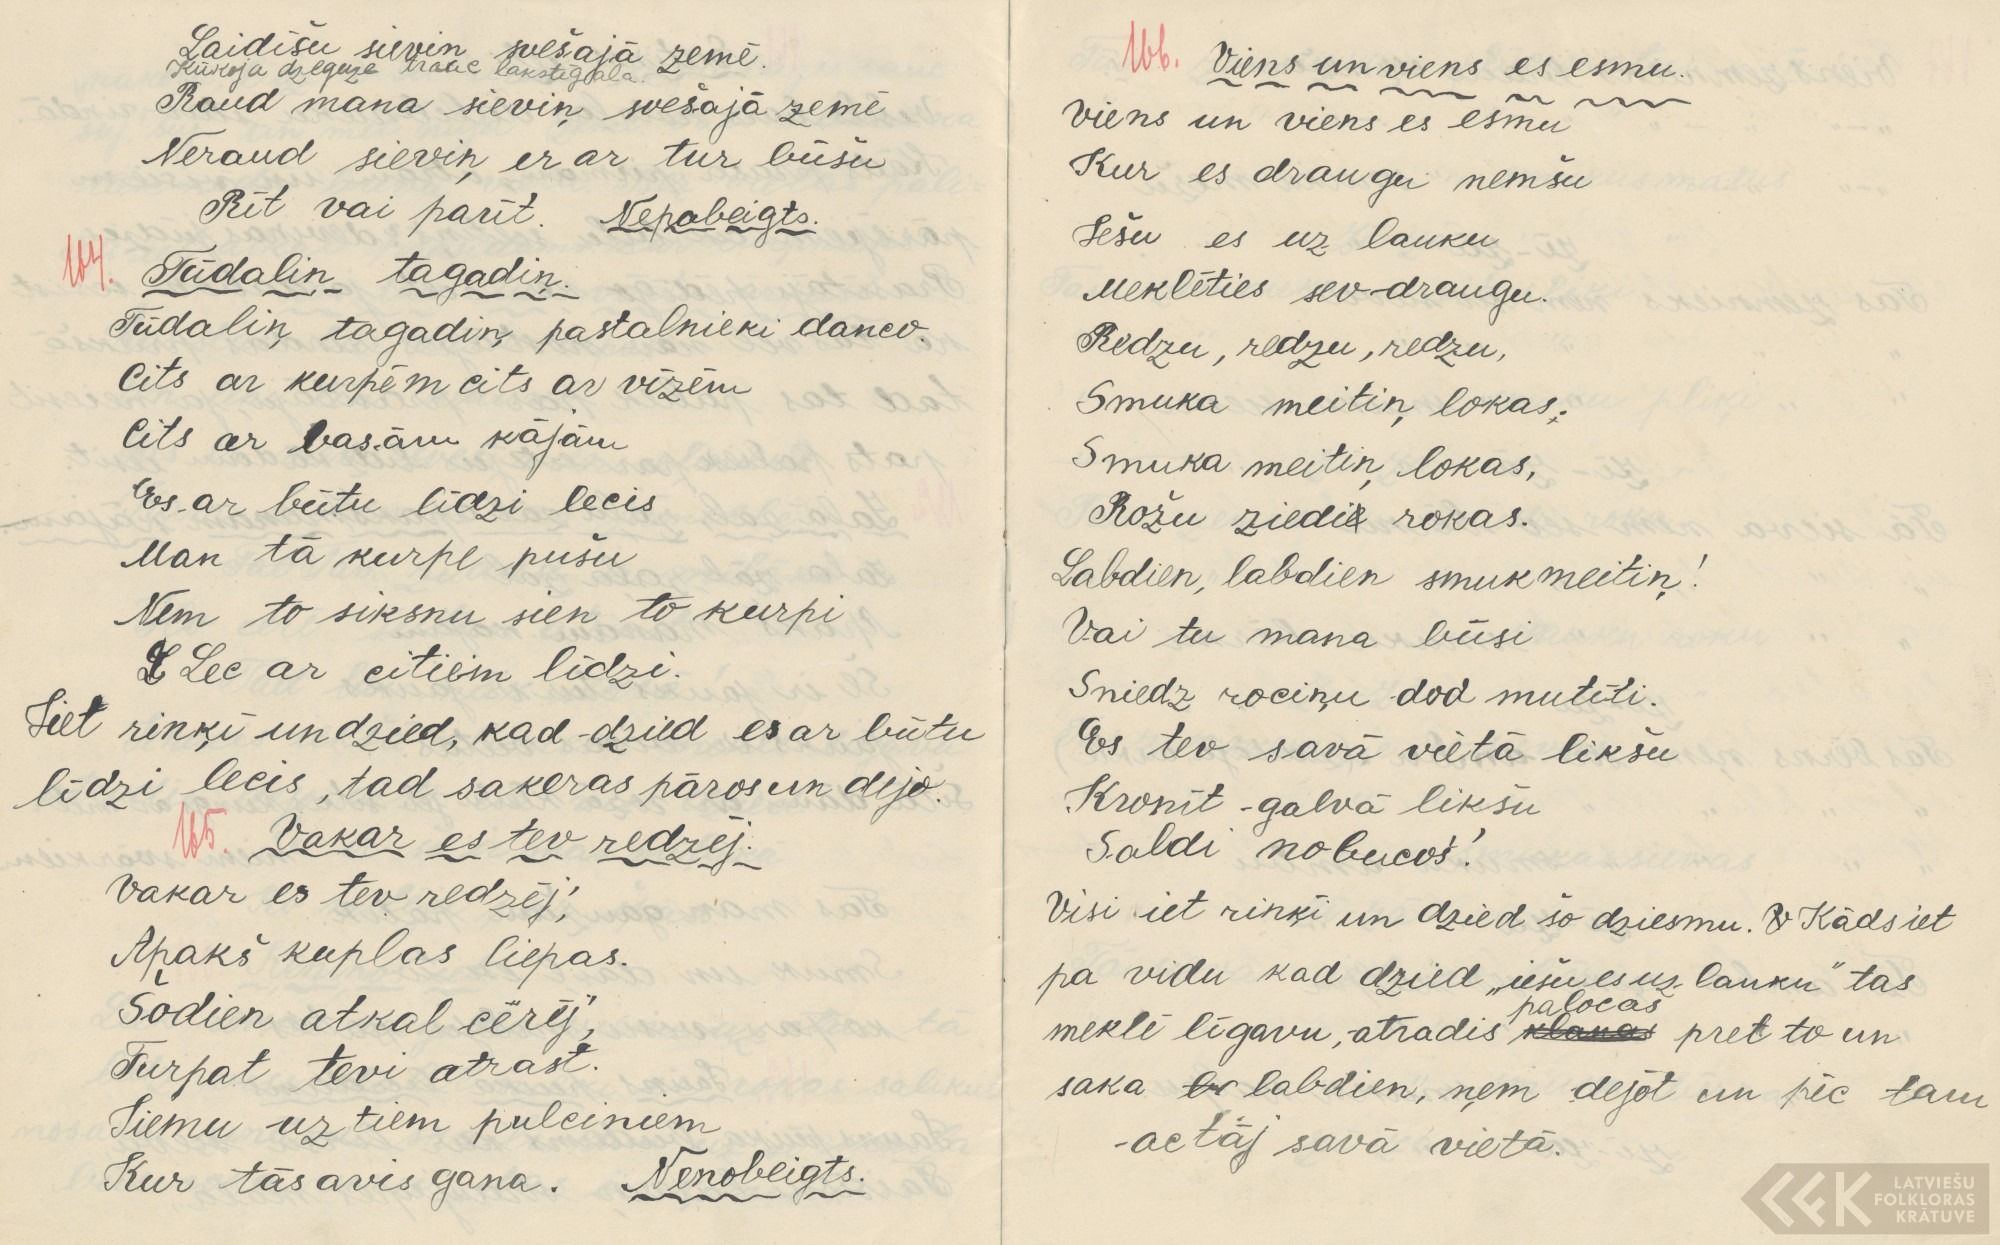 Laidīšu sieviņ svešajā zemē.
Kūkoja dzeguze trauc lakstigala
Raud mana sieviņ svešajā zemē
Neraud sieviņ, er ar tur būšu
Rīt vai parīt. Nepabeigts.
164. Tūdaliņ tagadiņ.
Tūdaliņ tagadiņ, pastalnieki danco.
Cits ar kurpēm cits ar vīzēm
Cits ar basām kājām
Es ar būtu līdzi lecis
Man tā kurpe pušu
Nem to siksnu sien to kurpi
Lec ar citiem līdzi.
Iet riņķī un dzied, kad dzied es ar būtu
līdzi lecis, tad sakeras pāros un dejo.
165. Vakar es tev redzēj.
Vakar es tev redzēj',
Apakš kuplas liepas.
Šodien atkal cērēj',
Turpat tevi atrast.
Iemu uz tiem pulciniem
Kur tās avis gana. Nenobeigts.
166. Viens un viens es esmu.
Viens un viens es esmu
Kur es draugu nemšu
Iešu es uz lauku
Meklēties sev draugu.
Redzu, redzu, redzu,
Smuka meitiņ lokas;
Smuka meitiņ, lokas,
Rožu ziedi rokas.
Labdien, labdien smuk meitiņ!
Vai tu mana būsi
Sniedz rociņu dod mutīti.
Es tev savā vietā likšu
Kronīt galvā likšu
Saldi nobučoš!
Visi iet riņķī un dzied šo dziesmu. Kāds iet
pa vidu kad dzied „iešu es uz lauku" tas
meklē līgavu, atradis palocas pret to un
saka labdien, ņem dejot un pēc tam
atstāj savā vietā.
LATVIEŠU
FOLKLORAS
KRĀTUVE